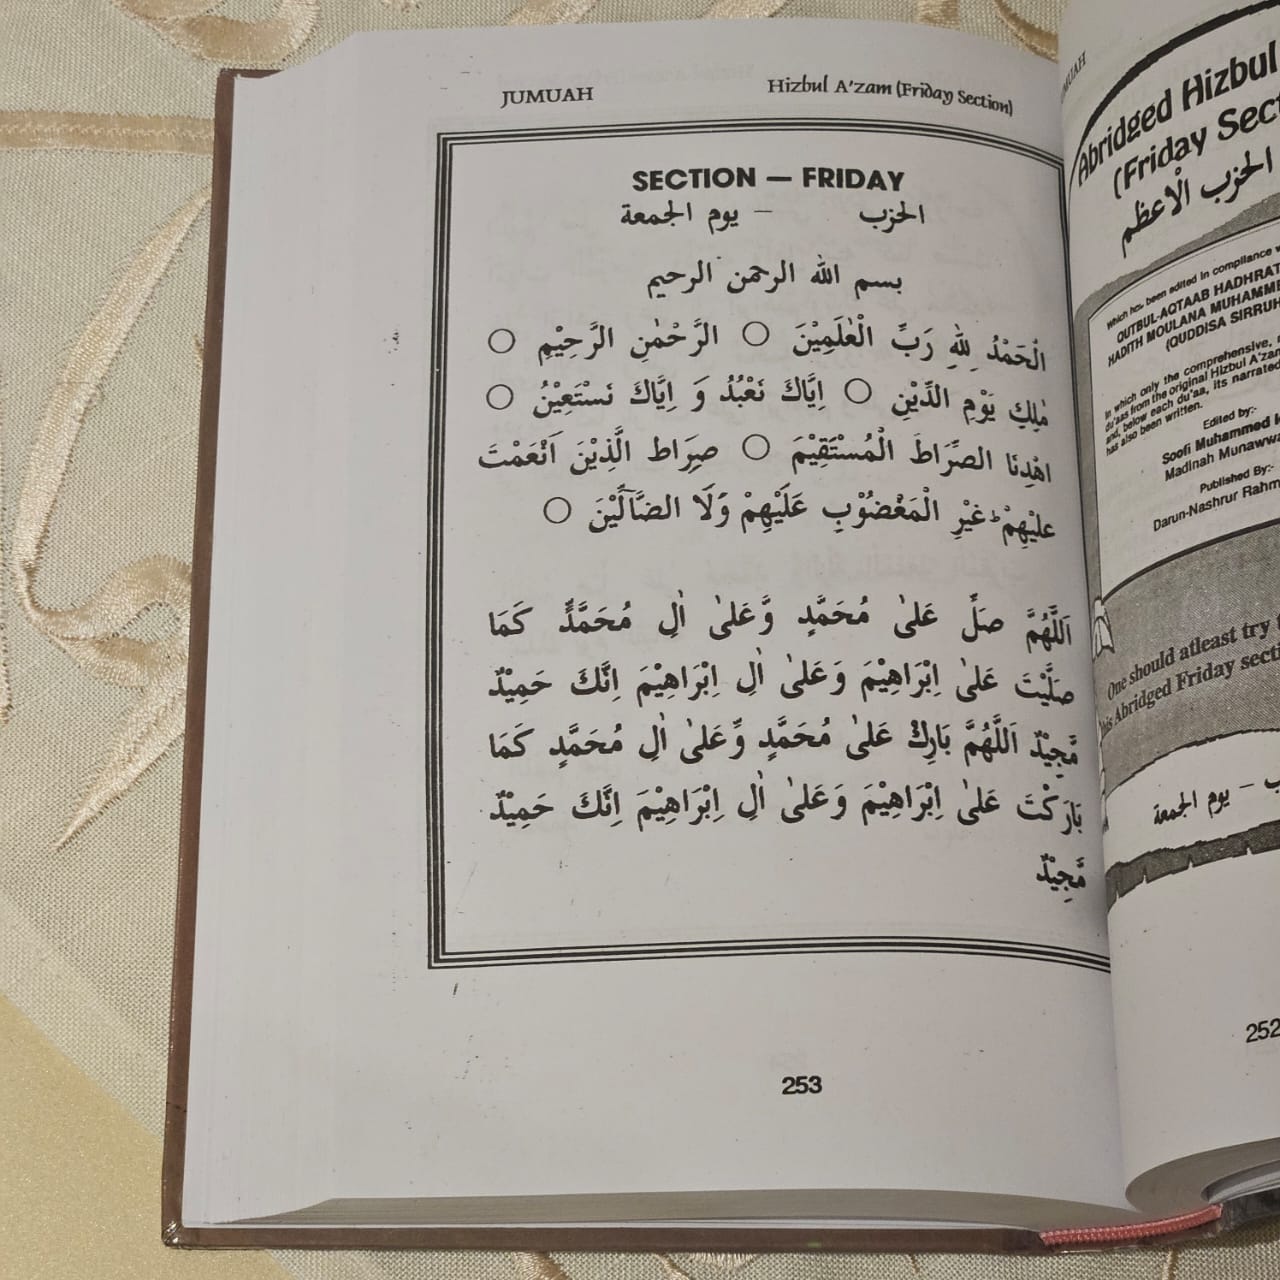 JUMUAH Hizbul A'zam (Friday Section)
SECTION — FRIDAY
الحزب – يوم الجمعة
بسم الله الرحمن الرحيم
اَلْحَمْدُ لِلّٰهِ رَبِّ الْعٰلَمِيْنَ ○ الرَّحْمٰنِ الرَّحِيْمِ ○
مٰلِكِ يَوْمِ الدِّيْنِ ○ اِيَّاكَ نَعْبُدُ وَ اِيَّاكَ نَسْتَعِيْنُ ○
اهْدِنَا الصِّرَاطَ الْمُسْتَقِيْمَ ○ صِرَاط الَّذِيْنَ اَنْعَمْتَ
عليْهِمْ ۙ غَيْرِ الْمَغْضُوْبِ عَلَيْهِمْ وَلَا الضَّآلِّيْنَ ○
اَللّٰهُمَّ صَلِّ عَلىٰ مُحَمَّدٍ وَّعَلىٰ اٰلِ مُحَمَّدٍ كَمَا
صَلَّيْتَ عَلىٰ اِبْرَاهِيْمَ وَعَلىٰ اٰلِ اِبْرَاهِيْمَ اِنَّكَ حَمِيْدٌ
مَّجِيْدٌ اَللّٰهُمَّ بَارِكْ عَلىٰ مُحَمَّدٍ وَّعَلىٰ اٰلِ مُحَمَّدٍ كَمَا
بَارَكْتَ عَلىٰ اِبْرَاهِيْمَ وَعَلىٰ اٰلِ اِبْرَاهِيْمَ اِنَّكَ حَمِيْدٌ
مَّجِيْدٌ
253
Abridged Hizbul
(Friday Sect
الحزب الْاعظم
which has been edited in compliance
QUTBUL-AQTAAB HADHRAT
HADITH MOULANA MUHAMME
(QUDDISA SIRRUH
In which only the comprehensive,
du'aas from the original Hizbul A'zam
and, below each du'aa, its narrated
has also been written.
Edited by:-
Soofi Muhammed
Madinah Munaww
Published By:-
Darun-Nashrur Rahm
One should atleast try
Abridged Friday secti
– يوم الجمعة
252